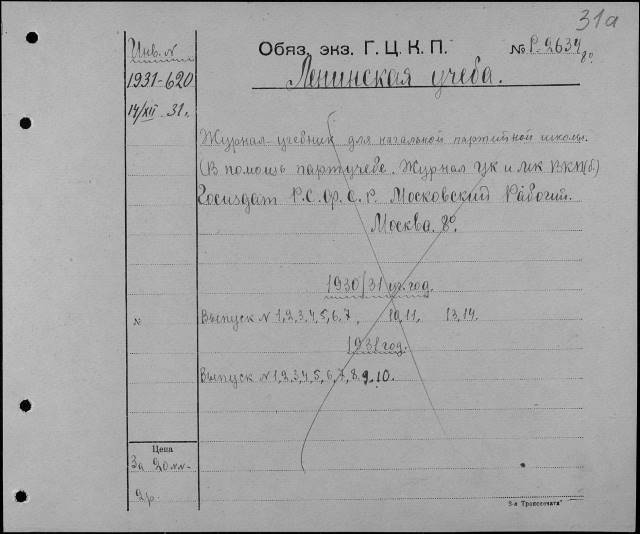 31а
Инв. N
1931-620
14/XII 31г.
Обяз. экз. Г. Ц. К. П.
№ Р-2634 8º
Ленинская учеба.
Журнал-учебник для начальной партийной школы.
(В помощь партучебе. Журнал ЦК и МК ВКП(б)
Госиздат Р.С.Ф.С.Р. Московский Рабочий.
Москва. 8º.
1930/31 уч. год.
№
Выпуск N 1,2,3,4,5,6,7, 10,11, 13,14.
1931 год.
Выпуск N 1,2,3,4,5,6,7,8,9,10.
Цена
За 20 NN-
2р.
3-я Транспечати